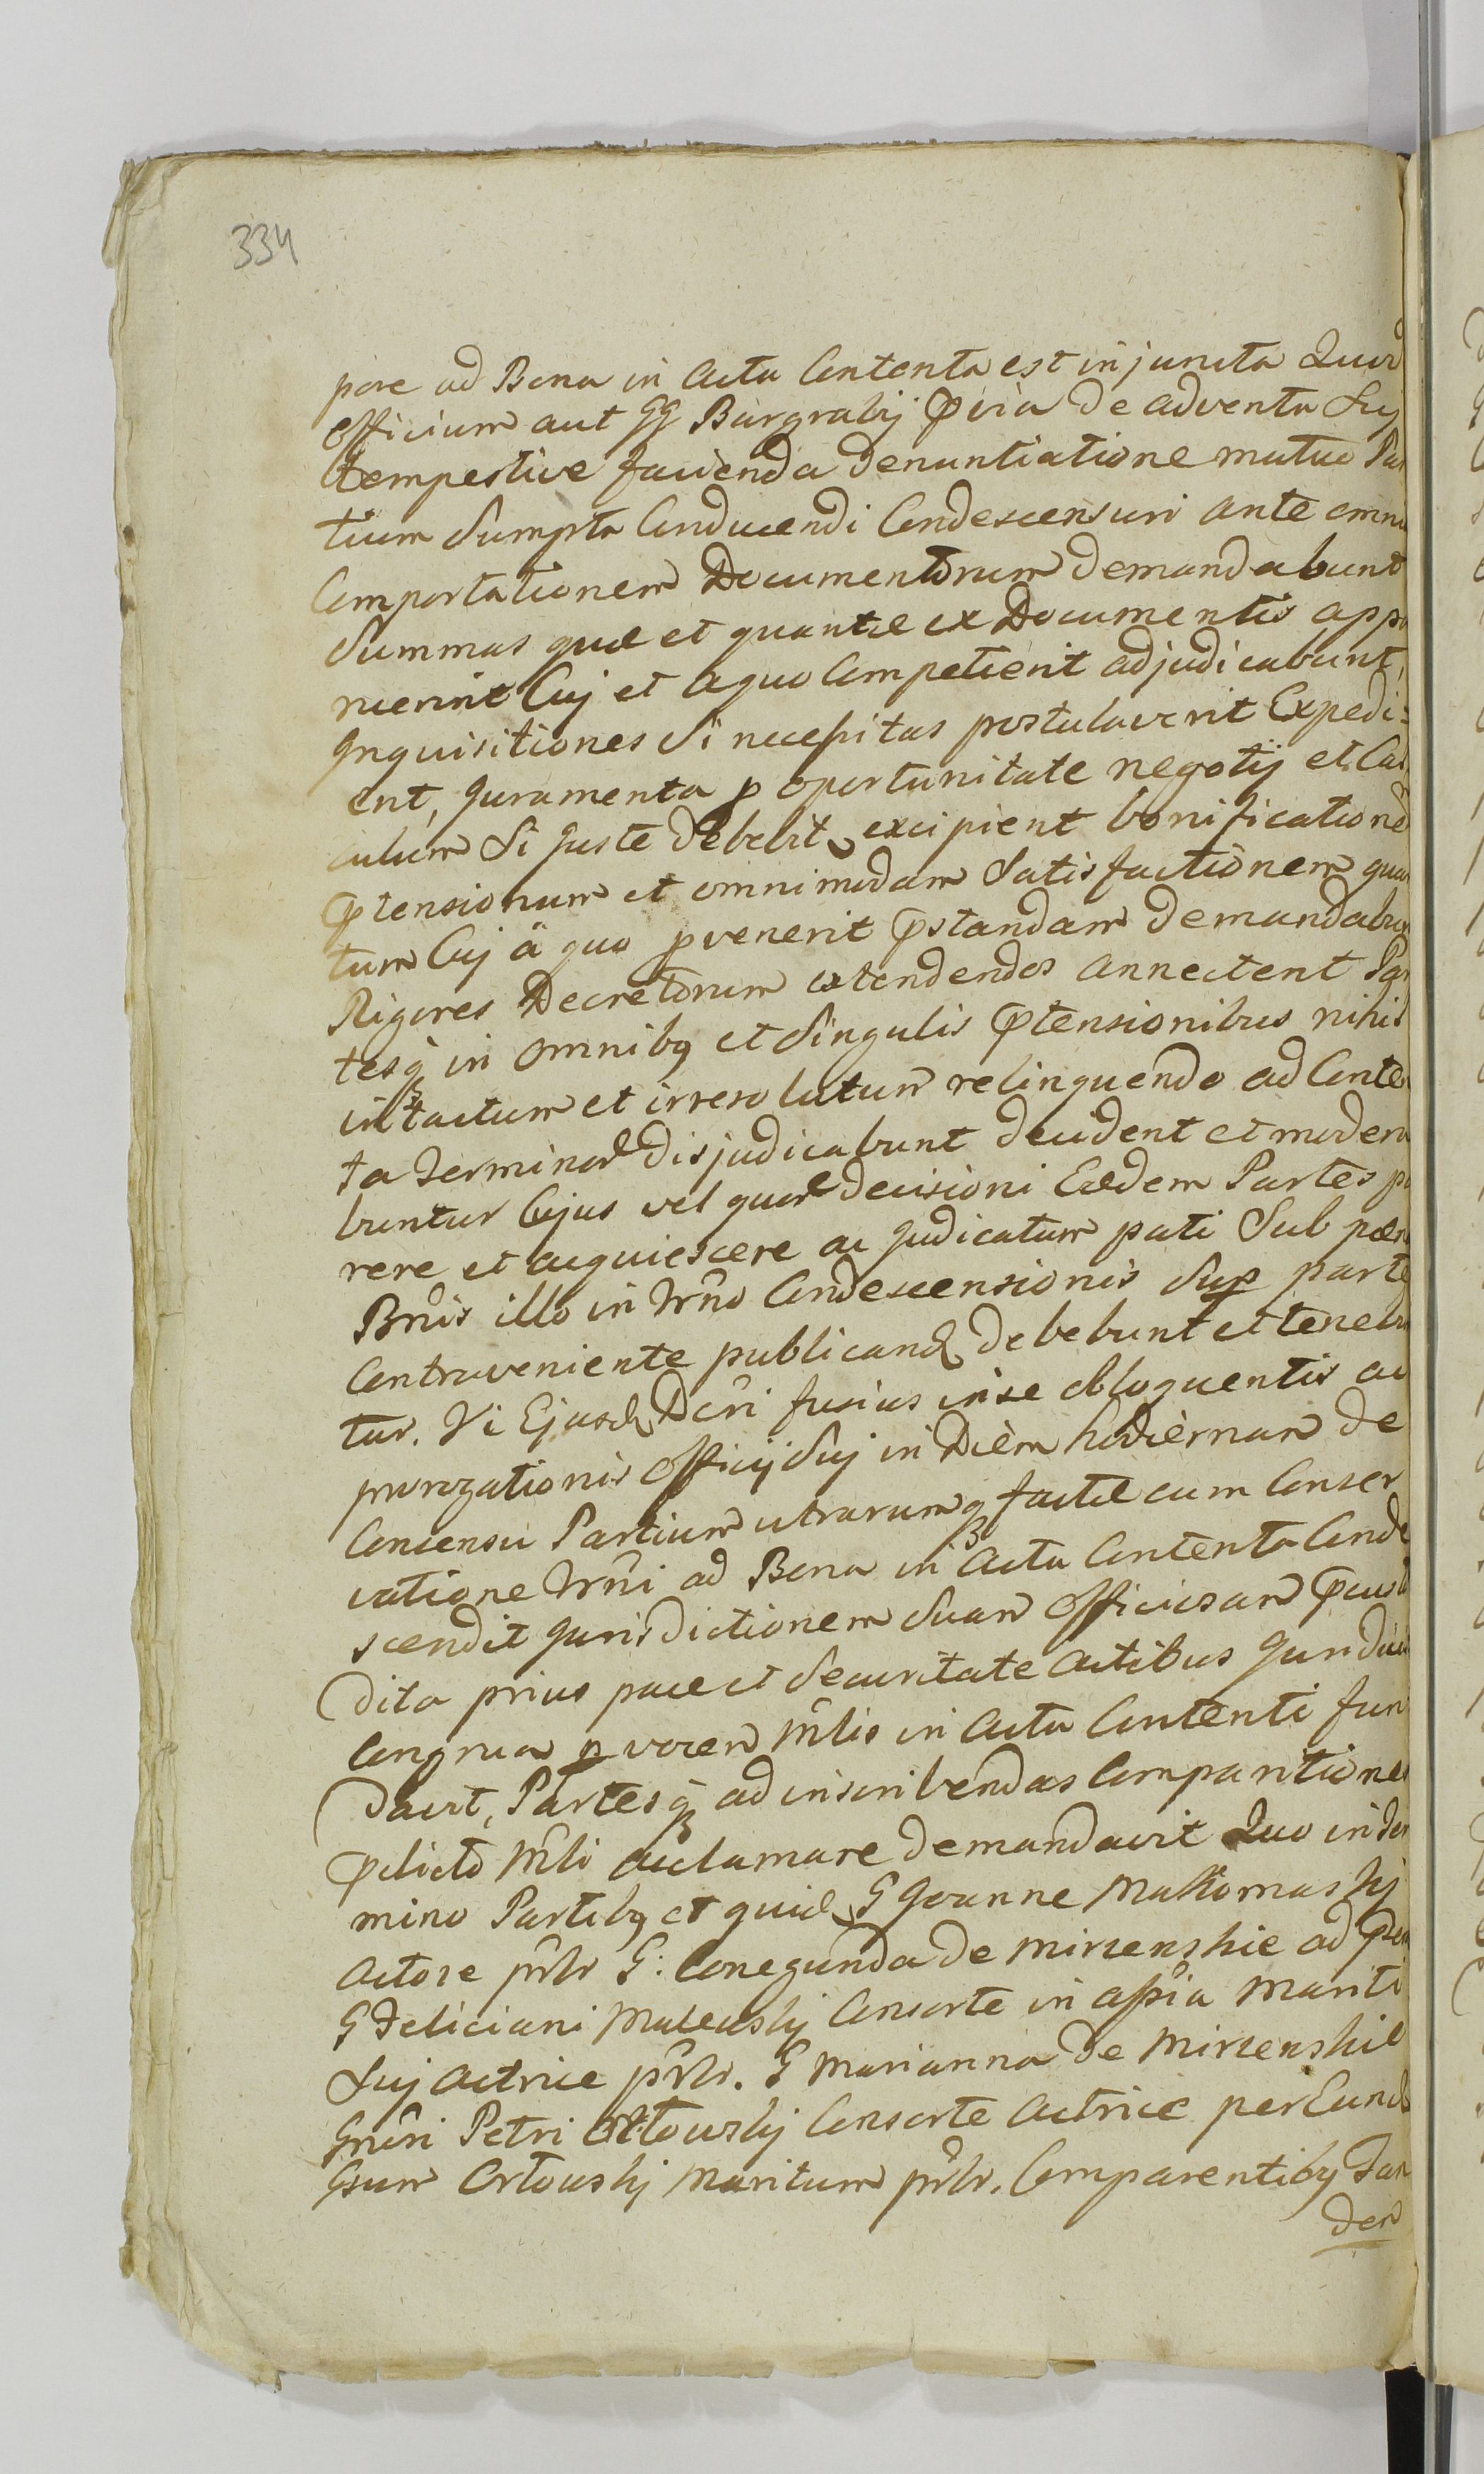 334
pore ad Bona in Actu Contenta est injuncta Quod
Officium aut GG Burgrabij P̄via de adventu Suj
tempestive facienda denuntiatione mutuo Par
tium Sumptu Conducendi Condescensuri ante omnia
Comportationem Documentorum demandabunt
Summas quæ et quantæ ex Documentis appa
ruerint Cuj et aquo Competierit adjudicabunt,
Inquisitiones Si necessitas postulaverit Expedi:
ent, Juramenta p oportunitate negotij et Cal
culum Si Juste debebit excipient bonificatione
P̄tensionum et omnimodam Satisfactionem quan
tum Cuj à quo pvenerit P̄standam demandabunt
Rigores Decretorum extendendos annectent Par
tesq̃ in omnibq et Singulis P̄tensionibus nihil
intactum et irresolutum relinquendo ad Conten
ta Terminor disjudicabunt decident et modera
buntur Cujus vel quor decisioni Eædem Partes pa
rere et acquiescere ac Judicatum pati Sub pœna
Bnis illo in Trño Condescensionis Sup parte
Contraveniente publicand debebunt et tenebun
tur. Vi Ejusd Dcri fusius inse obloquentis ac
prorogationis Officij Suj in Diem hodiernam de
Consensu Partium utrarumq factæ cum Conser
vatione Trñi ad Bona in Actu Contenta Conde
scendit Jurisdictionem Suam Officiosam P̄custo
dita prius pace et Securitate Actibus Juridicis
Congrua p vocem Mlis in Actu Contenti fun
davit, Partesq̃ ad inscribendas Comparitiones
P̄dicto Mli acclamare demandavit Quo in Ter
mino Partibq et quid G Joanne Makomaskj
Actore prlr G: Conegunda de Mirzenskie ad P̄sen
G Feliciani Maleuskj Consorte in assia Mariti
Suj Actrice prlr. G Marianna de Mirzenskie
Gnēri Petri Ortouskj Consorte Actrice per Eund
Gsum Ortouskj Maritum prlr. Comparentibq Tan
dem